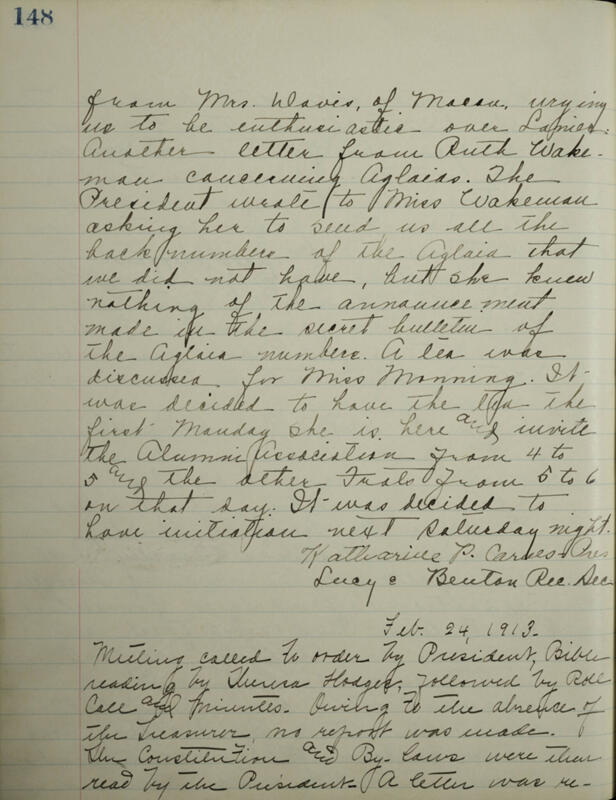 148
from Mrs. Davis, of Macon, urging
us to be enthusiastic over Lanier.
Another letter from Ruth Wake-
man concerning Aglaias. The
President wrote to Miss Wakeman
asking her to send us all the
back numbers of the Aglaia that
we did not have, but she knew
nothing of the announcement
made in the secret bulletin of
the Aglaia numbers. A tea was
discussed for Miss Monning. It
was decided to have the tea the
first Monday she is here and invite
the Alumni Association from 4 to
5 and the other Frats from 5 to 6
on that day. It was decided to
have initiation next Saturday night.
Katharine P. Carnes Pres
Lucy C Benton Rec. Sec
Feb. 24, 1913.
Meeting called to order by President, Bible
reading by Theresa Hodges, followed by Roll
Call and Minutes. Owing to the absence of
the Treasurer, no report was made.
The Constitution and By-laws were then
read by the President. A letter was re-